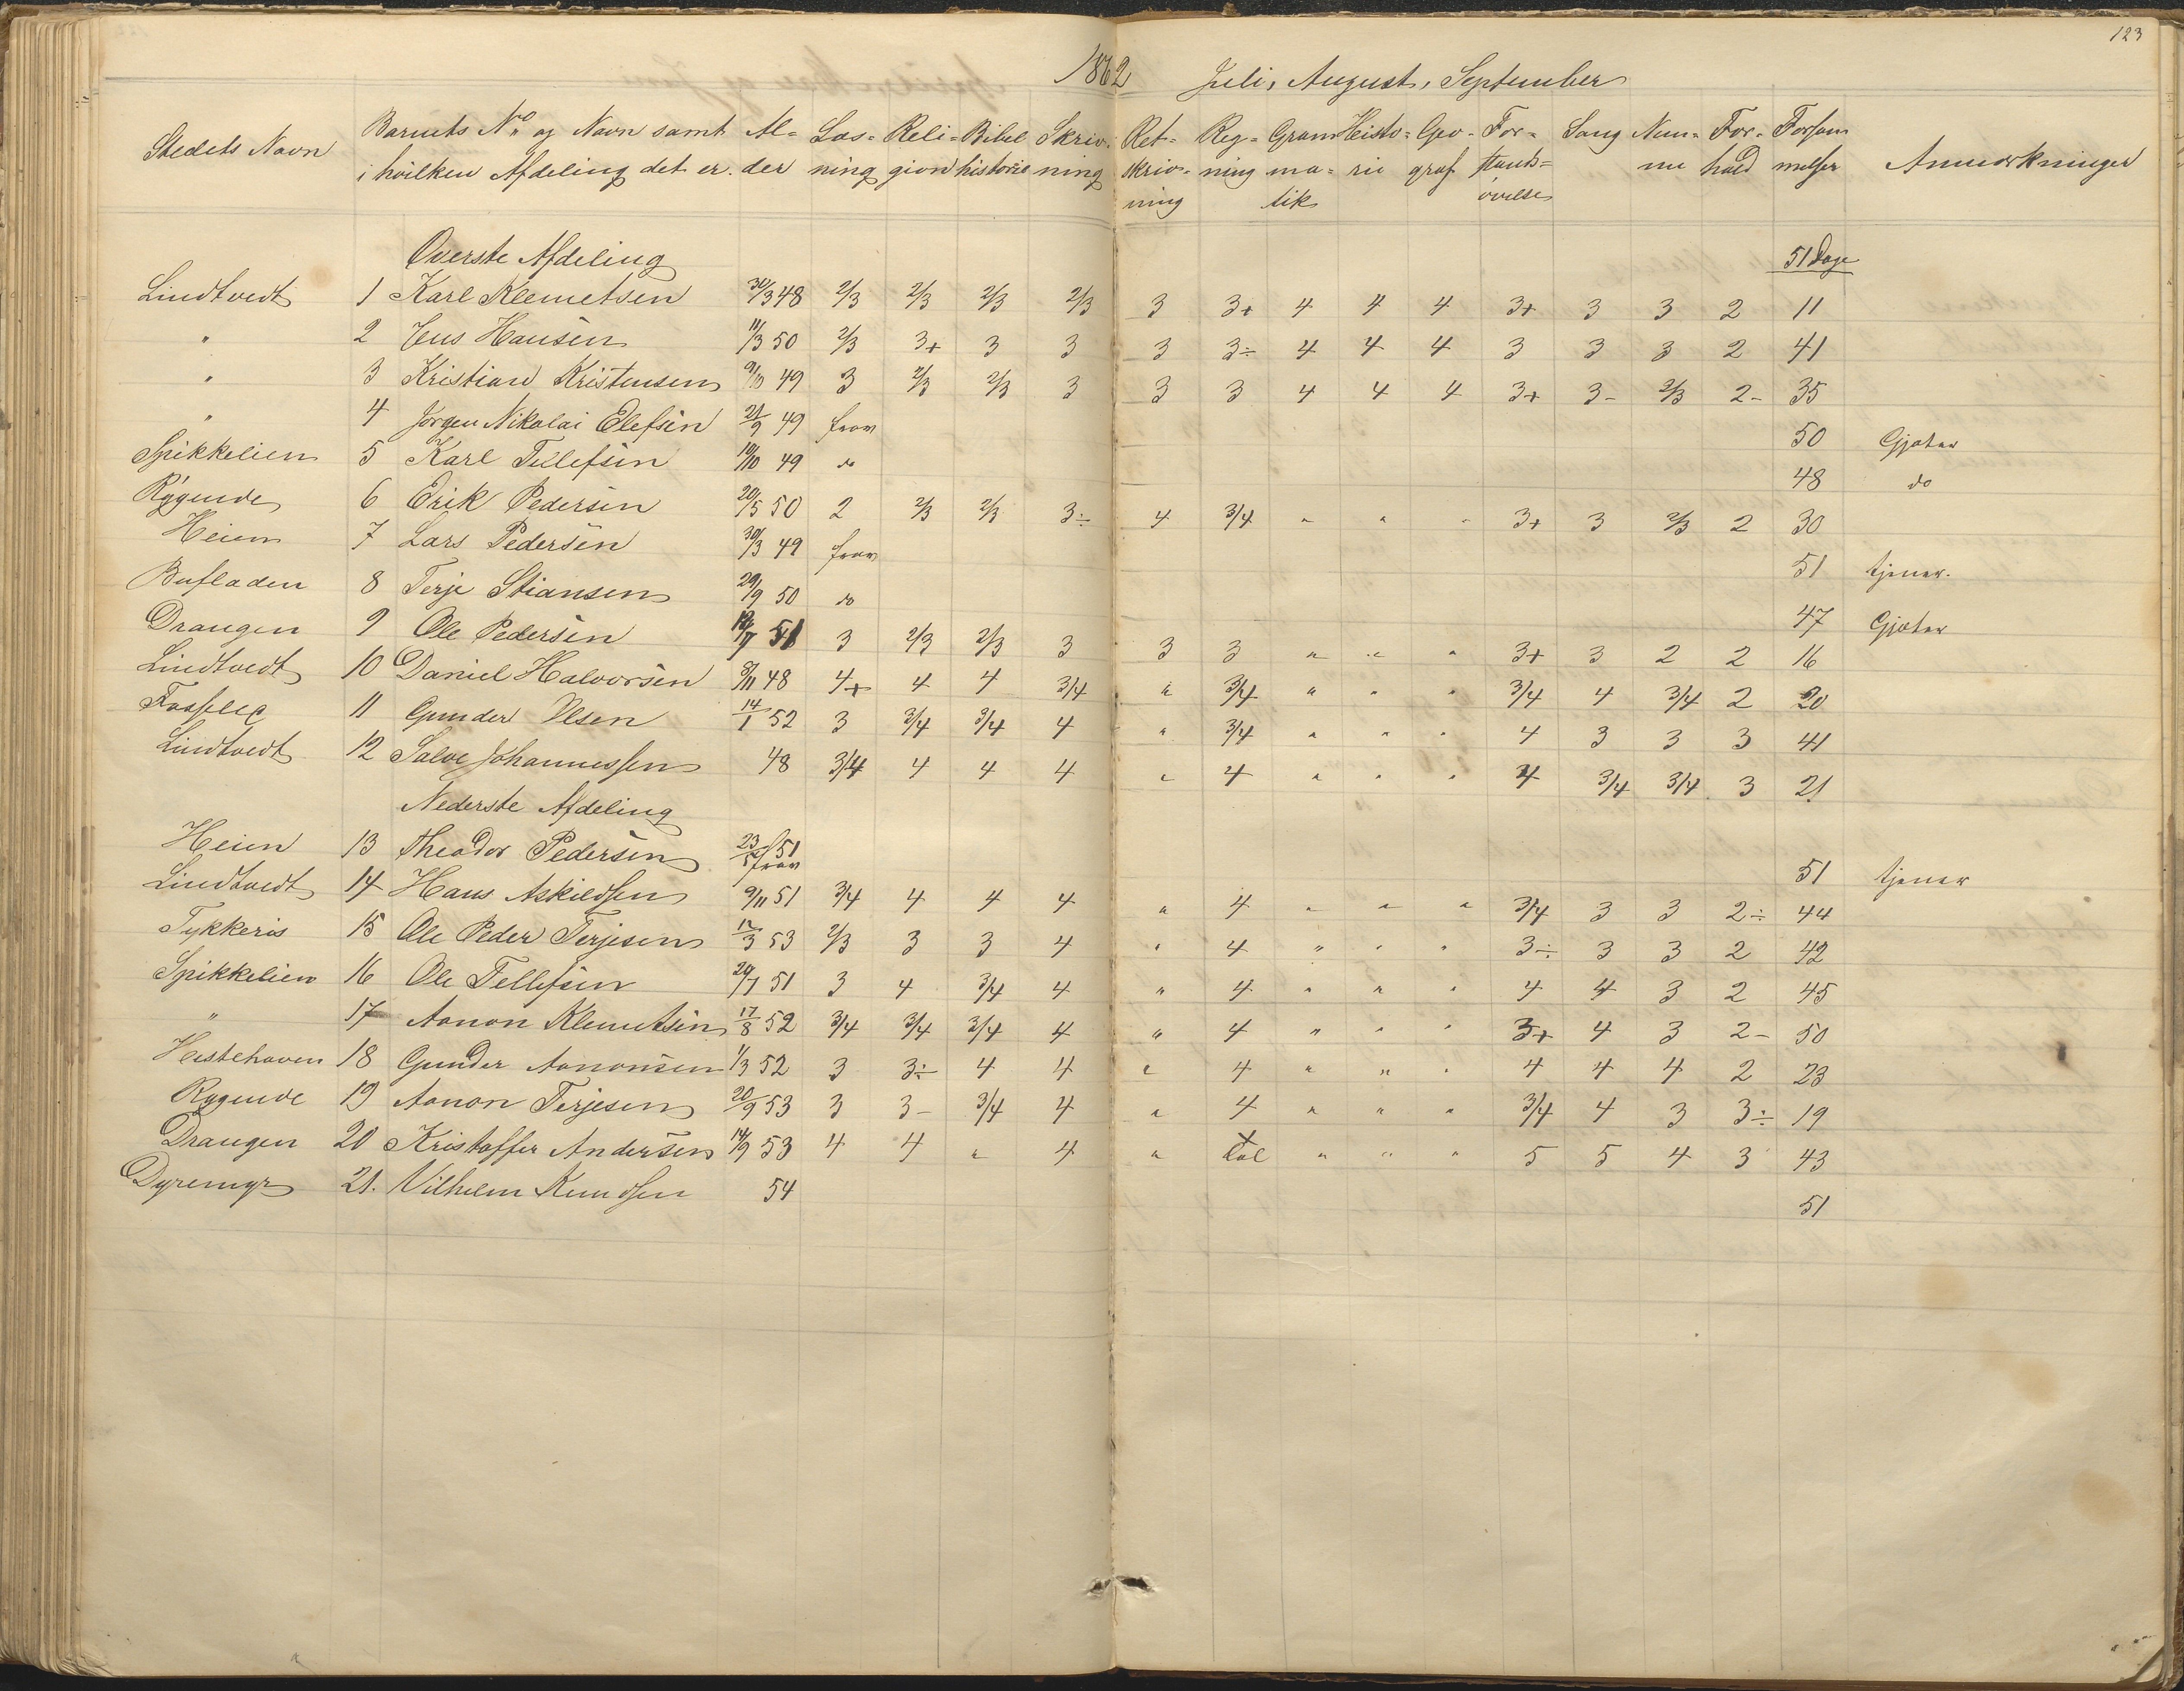 123
1862 Juli, August, September
Stedets Navn Barnets No og Navn samt Al= Læs= Reli= Bibel Skriv= Ret= Reg= Gram Histo= Geo= For= Sang Nem= For= Forsøm
i hvilken Afdeling det er. der ning gion historie ning skriv= ning ma= rie graf stands= me hold melser Anmærkninger
ning tik øvelse
Øverste Afdeling 51 Dage
Lindtvedt 1 Karl Klemetsen 30/3 48 2/3 2/3 2/3 2/3 3 3+ 4 4 4 3+ 3 3 2 11
" 2 Jens Hansen 11/3 50 2/3 3+ 3 3 3 3÷ 4 4 4 3 3 3 2 41
" 3 Kristian Kristensen 9/10 49 3 2/3 2/3 3 3 3 4 4 4 3+ 3- 2/3 2- 35
" 4 Jørgen Nikolai Elefsen 21/9 49 frav 50 Gjæter
Spikkelien 5 Karl Tellefsen 10/10 49 do 48 do
Rygende 6 Erik Pedersen 20/5 50 2 2/3 2/3 3÷ 4 3/4 " " " 3+ 3 2/3 2 30
Heien 7 Lars Pedersen 30/3 49 frav 51 tjener.
Bufladen 8 Terje Stiansen 29/9 50 do 47 Gjæter
Drangen 9 Ole Pedersen 12/7 51 3 2/3 2/3 3 3 3 " " " 3+ 3 2 2 16
Lindtvedt 10 Daniel Halvorsen 8/11 48 4+ 4 4 3/4 " 3/4 " " " 3/4 4 3/4 2 20
11 Gunder Olsen 14/1 52 3 3/4 3/4 4 " 3/4 " " " 4 3 3 3 41
Lindtvedt 12 Salve Johannessen 48 3/4 4 4 4 " 4 " " " 4 3/4 3/4 3 21
Nederste Afdeling
Heien 13 Theodor Pedersen 23/5 51 frav 51 tjener
Lindtvedt 14 Hans Askildsen 9/11 51 3/4 4 4 4 " 4 " " " 3/4 3 3 2÷ 44
Tykkeris 15 Ole Peder Terjesen 12/3 53 2/3 3 3 4 " 4 " " " 3÷ 3 3 2 42
Spikkelien 16 Ole Tellefsen 29/1 51 3 4 3/4 4 " 4 " " " 4 4 3 2 45
" 17 Aanon Klemetsen 17/8 52 3/4 3/4 3/4 4 " 4 " " " 3+ 4 3 2- 50
Hestehaven 18 Gunder Aanonsen 1/3 52 3 3÷ 4 4 " 4 " " " 4 4 4 2 23
Rygende 19 Aanon Terjesen 20/9 53 3 3- 3/4 4 " 4 " " " 3/4 4 3 3÷ 19
Drangen 20 Kristoffer Andersen 14/9 53 4 4 " 4 " tal " " " 5 5 4 3 43
Dyremyr 21. Vilhelm Knudsen 54 51